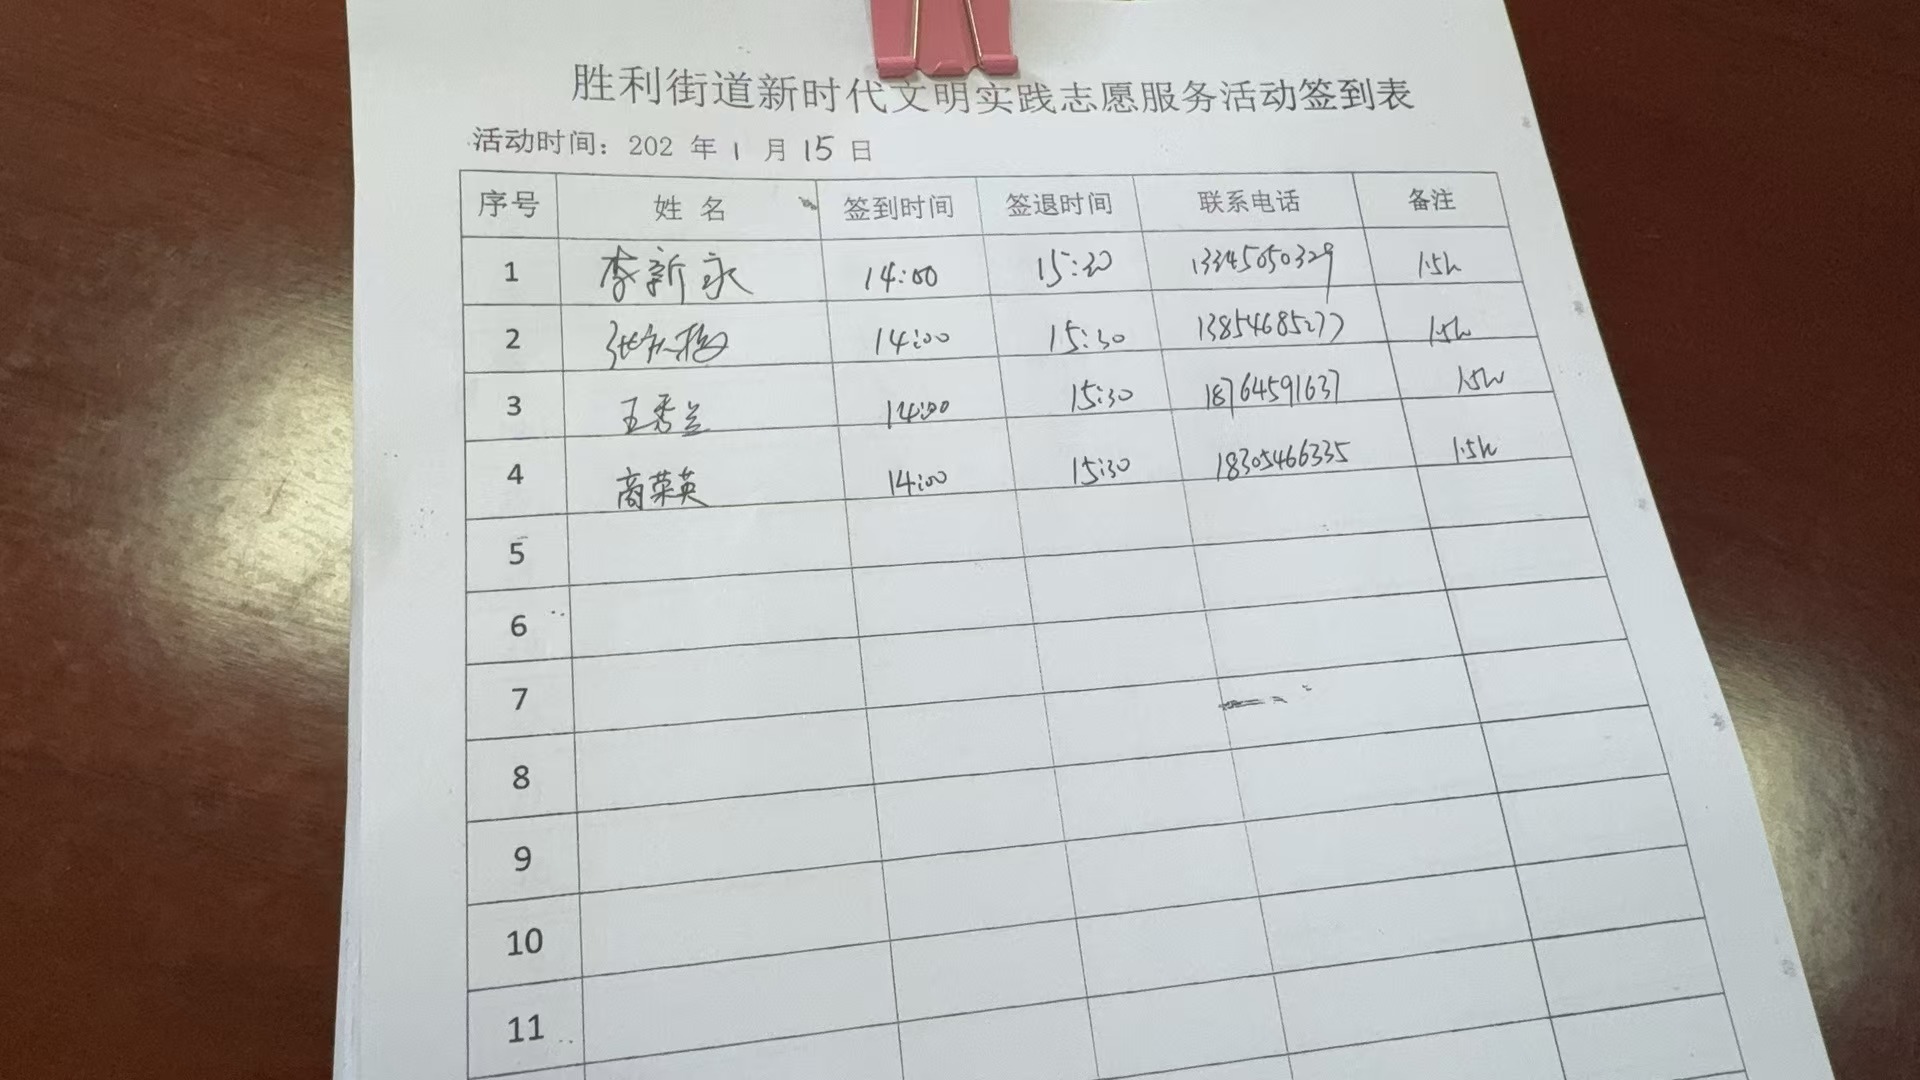 胜利街道新时代文明实践志愿服务活动签到表
活动时间：202 年 1 月 15 日
序号 姓 名 签到时间 签退时间 联系电话 备注
1 李新永 14:00 15:30 13345050329 1.5h
2 张 梅 14:00 15:30 13854685277 1.5h
3 王秀兰 14:00 15:30 18764591637 1.5h
4 商荣英 14:00 15:30 18305466335 1.5h
5
6
7
8
9
10
11